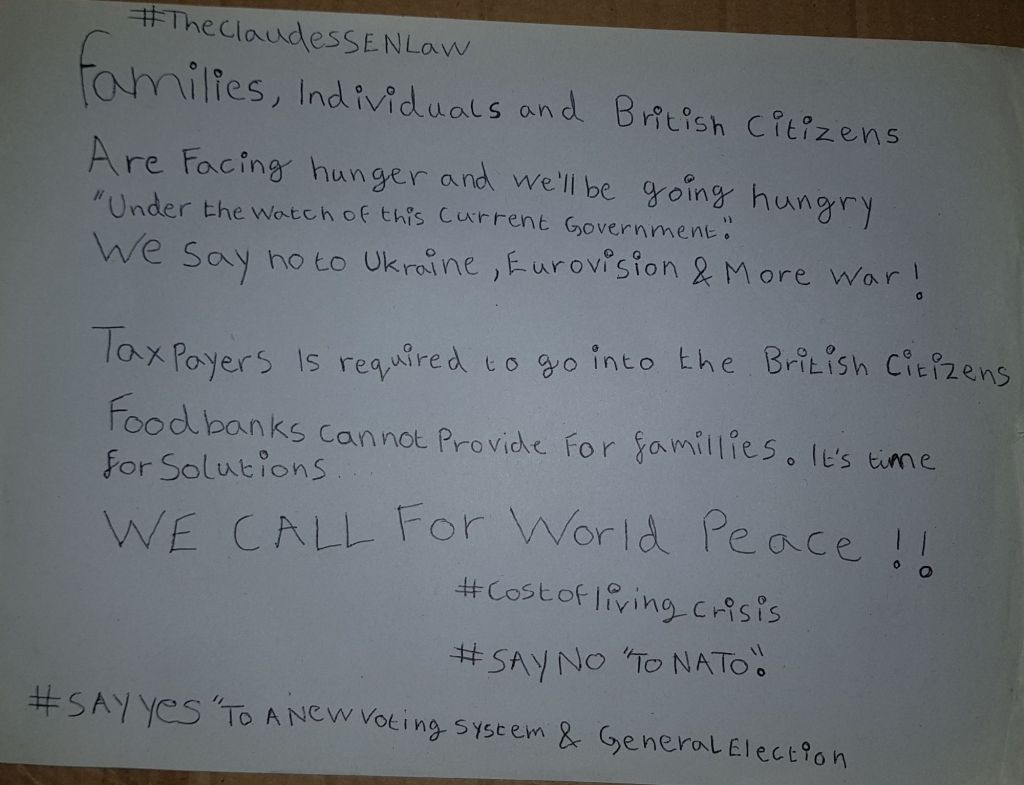 #TheClaudessSENLaw
Families, Individuals and British Citizens
Are Facing hunger and we'll be going hungry
"Under the watch of this Current Government."
We Say no to Ukraine, Eurovision & More war!
Tax Payers Is required to go into the British Citizens
Foodbanks Cannot Provide For famillies. It's time
for Solutions.
WE CALL For World Peace !!
#Costofliving Crisis
#SAY NO "TO NATO".
#SAY YES "TO A New Voting System & General Election